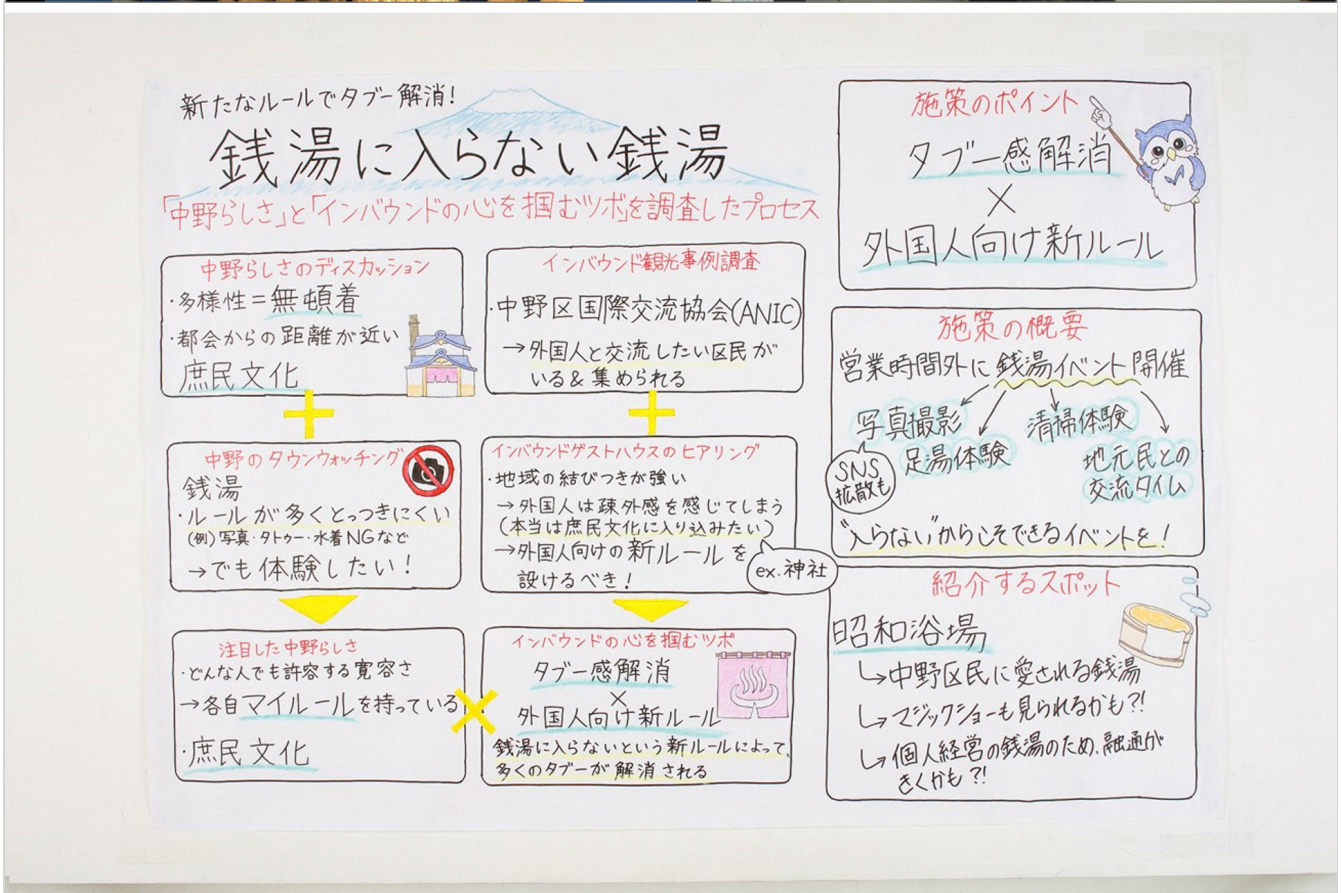 新たなルールでタブー解消!
銭湯に入らない銭湯
「中野らしさ」と「インバウンドの心を掴むツボ」を調査したプロセス
中野らしさのディスカッション
・多様性=無頓着
・都会からの距離が近い
庶民文化
+
中野のタウンウォッチング
銭湯
・ルールが多くとっつきにくい
(例)写真・タトゥー・水着NGなど
→でも体験したい!
注目した中野らしさ
・どんな人でも許容する寛容さ
→各自マイルールを持っている
・庶民文化
×
インバウンド観光事例調査
・中野区国際交流協会(ANIC)
→外国人と交流したい区民が
いる&集められる
+
インバウンドゲストハウスのヒアリング
・地域の結びつきが強い
→外国人は疎外感を感じてしまう
(本当は庶民文化に入り込みたい)
→外国人向けの新ルールを
設けるべき!
ex.神社
インバウンドの心を掴むツボ
タブー感解消
×
外国人向け新ルール
銭湯に入らないという新ルールによって、
多くのタブーが解消される
施策のポイント
タブー感解消
×
外国人向け新ルール
施策の概要
営業時間外に銭湯イベント開催
写真撮影
SNS
拡散も
足湯体験
清掃体験
地元民との
交流タイム
"入らない"からこそできるイベントを!
紹介するスポット
昭和浴場
↳中野区民に愛される銭湯
↳マジックショーも見られるかも?!
↳個人経営の銭湯のため、融通が
きくかも?!